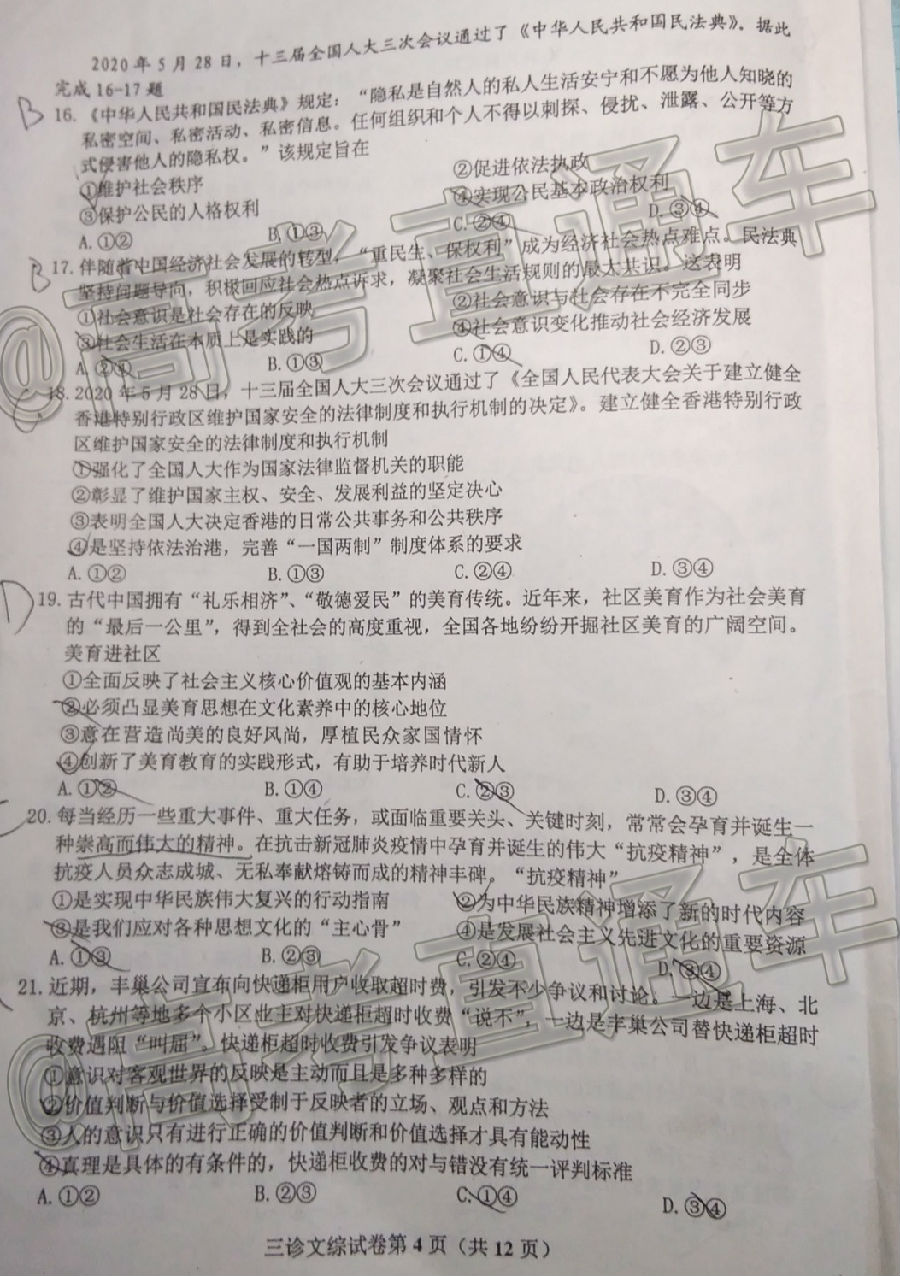 2020年5月28日，十三届全国人大三次会议通过了《中华人民共和国民法典》。据此
完成16-17题
B
16.《中华人民共和国民法典》规定：“隐私是自然人的私人生活安宁和不愿为他人知晓的
私密空间、私密活动、私密信息。任何组织和个人不得以刺探、侵扰、泄露、公开等方
式侵害他人的隐私权。”该规定旨在
①维护社会秩序 ②促进依法执政
③保护公民的人格权利 ④实现公民基本政治权利
A.①② B.①③ C.②④ D.③④
B
17.伴随着中国经济社会发展的转型，“重民生、保权利”成为经济社会热点难点。民法典
坚持问题导向，积极回应社会热点诉求，凝聚社会生活规则的最大共识。这表明
①社会意识是社会存在的反映 ②社会意识与社会存在不完全同步
③社会生活在本质上是实践的 ④社会意识变化推动社会经济发展
A.②④ B.①③ C.①④ D.②③
18.2020年5月28日，十三届全国人大三次会议通过了《全国人民代表大会关于建立健全
香港特别行政区维护国家安全的法律制度和执行机制的决定》。建立健全香港特别行政
区维护国家安全的法律制度和执行机制
①强化了全国人大作为国家法律监督机关的职能
②彰显了维护国家主权、安全、发展利益的坚定决心
③表明全国人大决定香港的日常公共事务和公共秩序
④是坚持依法治港，完善“一国两制”制度体系的要求
A.①② B.①③ C.②④ D.③④
D
19.古代中国拥有“礼乐相济”、“敬德爱民”的美育传统。近年来，社区美育作为社会美育
的“最后一公里”，得到全社会的高度重视，全国各地纷纷开掘社区美育的广阔空间。
美育进社区
①全面反映了社会主义核心价值观的基本内涵
②必须凸显美育思想在文化素养中的核心地位
③意在营造尚美的良好风尚，厚植民众家国情怀
④创新了美育教育的实践形式，有助于培养时代新人
A.①② B.①④ C.②③ D.③④
20.每当经历一些重大事件、重大任务，或面临重要关头、关键时刻，常常会孕育并诞生一
种崇高而伟大的精神。在抗击新冠肺炎疫情中孕育并诞生的伟大“抗疫精神”，是全体
抗疫人员众志成城、无私奉献熔铸而成的精神丰碑。“抗疫精神”
①是实现中华民族伟大复兴的行动指南 ②为中华民族精神增添了新的时代内容
③是我们应对各种思想文化的“主心骨” ④是发展社会主义先进文化的重要资源
A.①③ B.②③ C.②④ D.③④
21.近期，丰巢公司宣布向快递柜用户收取超时费，引发不少争议和讨论。一边是上海、北
京、杭州等地多个小区业主对快递柜超时收费“说不”，一边是丰巢公司替快递柜超时
收费遇阻“叫屈”。快递柜超时收费引发争议表明
①意识对客观世界的反映是主动而且是多种多样的
②价值判断与价值选择受制于反映者的立场、观点和方法
③人的意识只有进行正确的价值判断和价值选择才具有能动性
④真理是具体的有条件的，快递柜收费的对与错没有统一评判标准
A.①② B.②③ C.①④ D.③④
三诊文综试卷第4页（共12页）
@高考直通车
@高考直通车